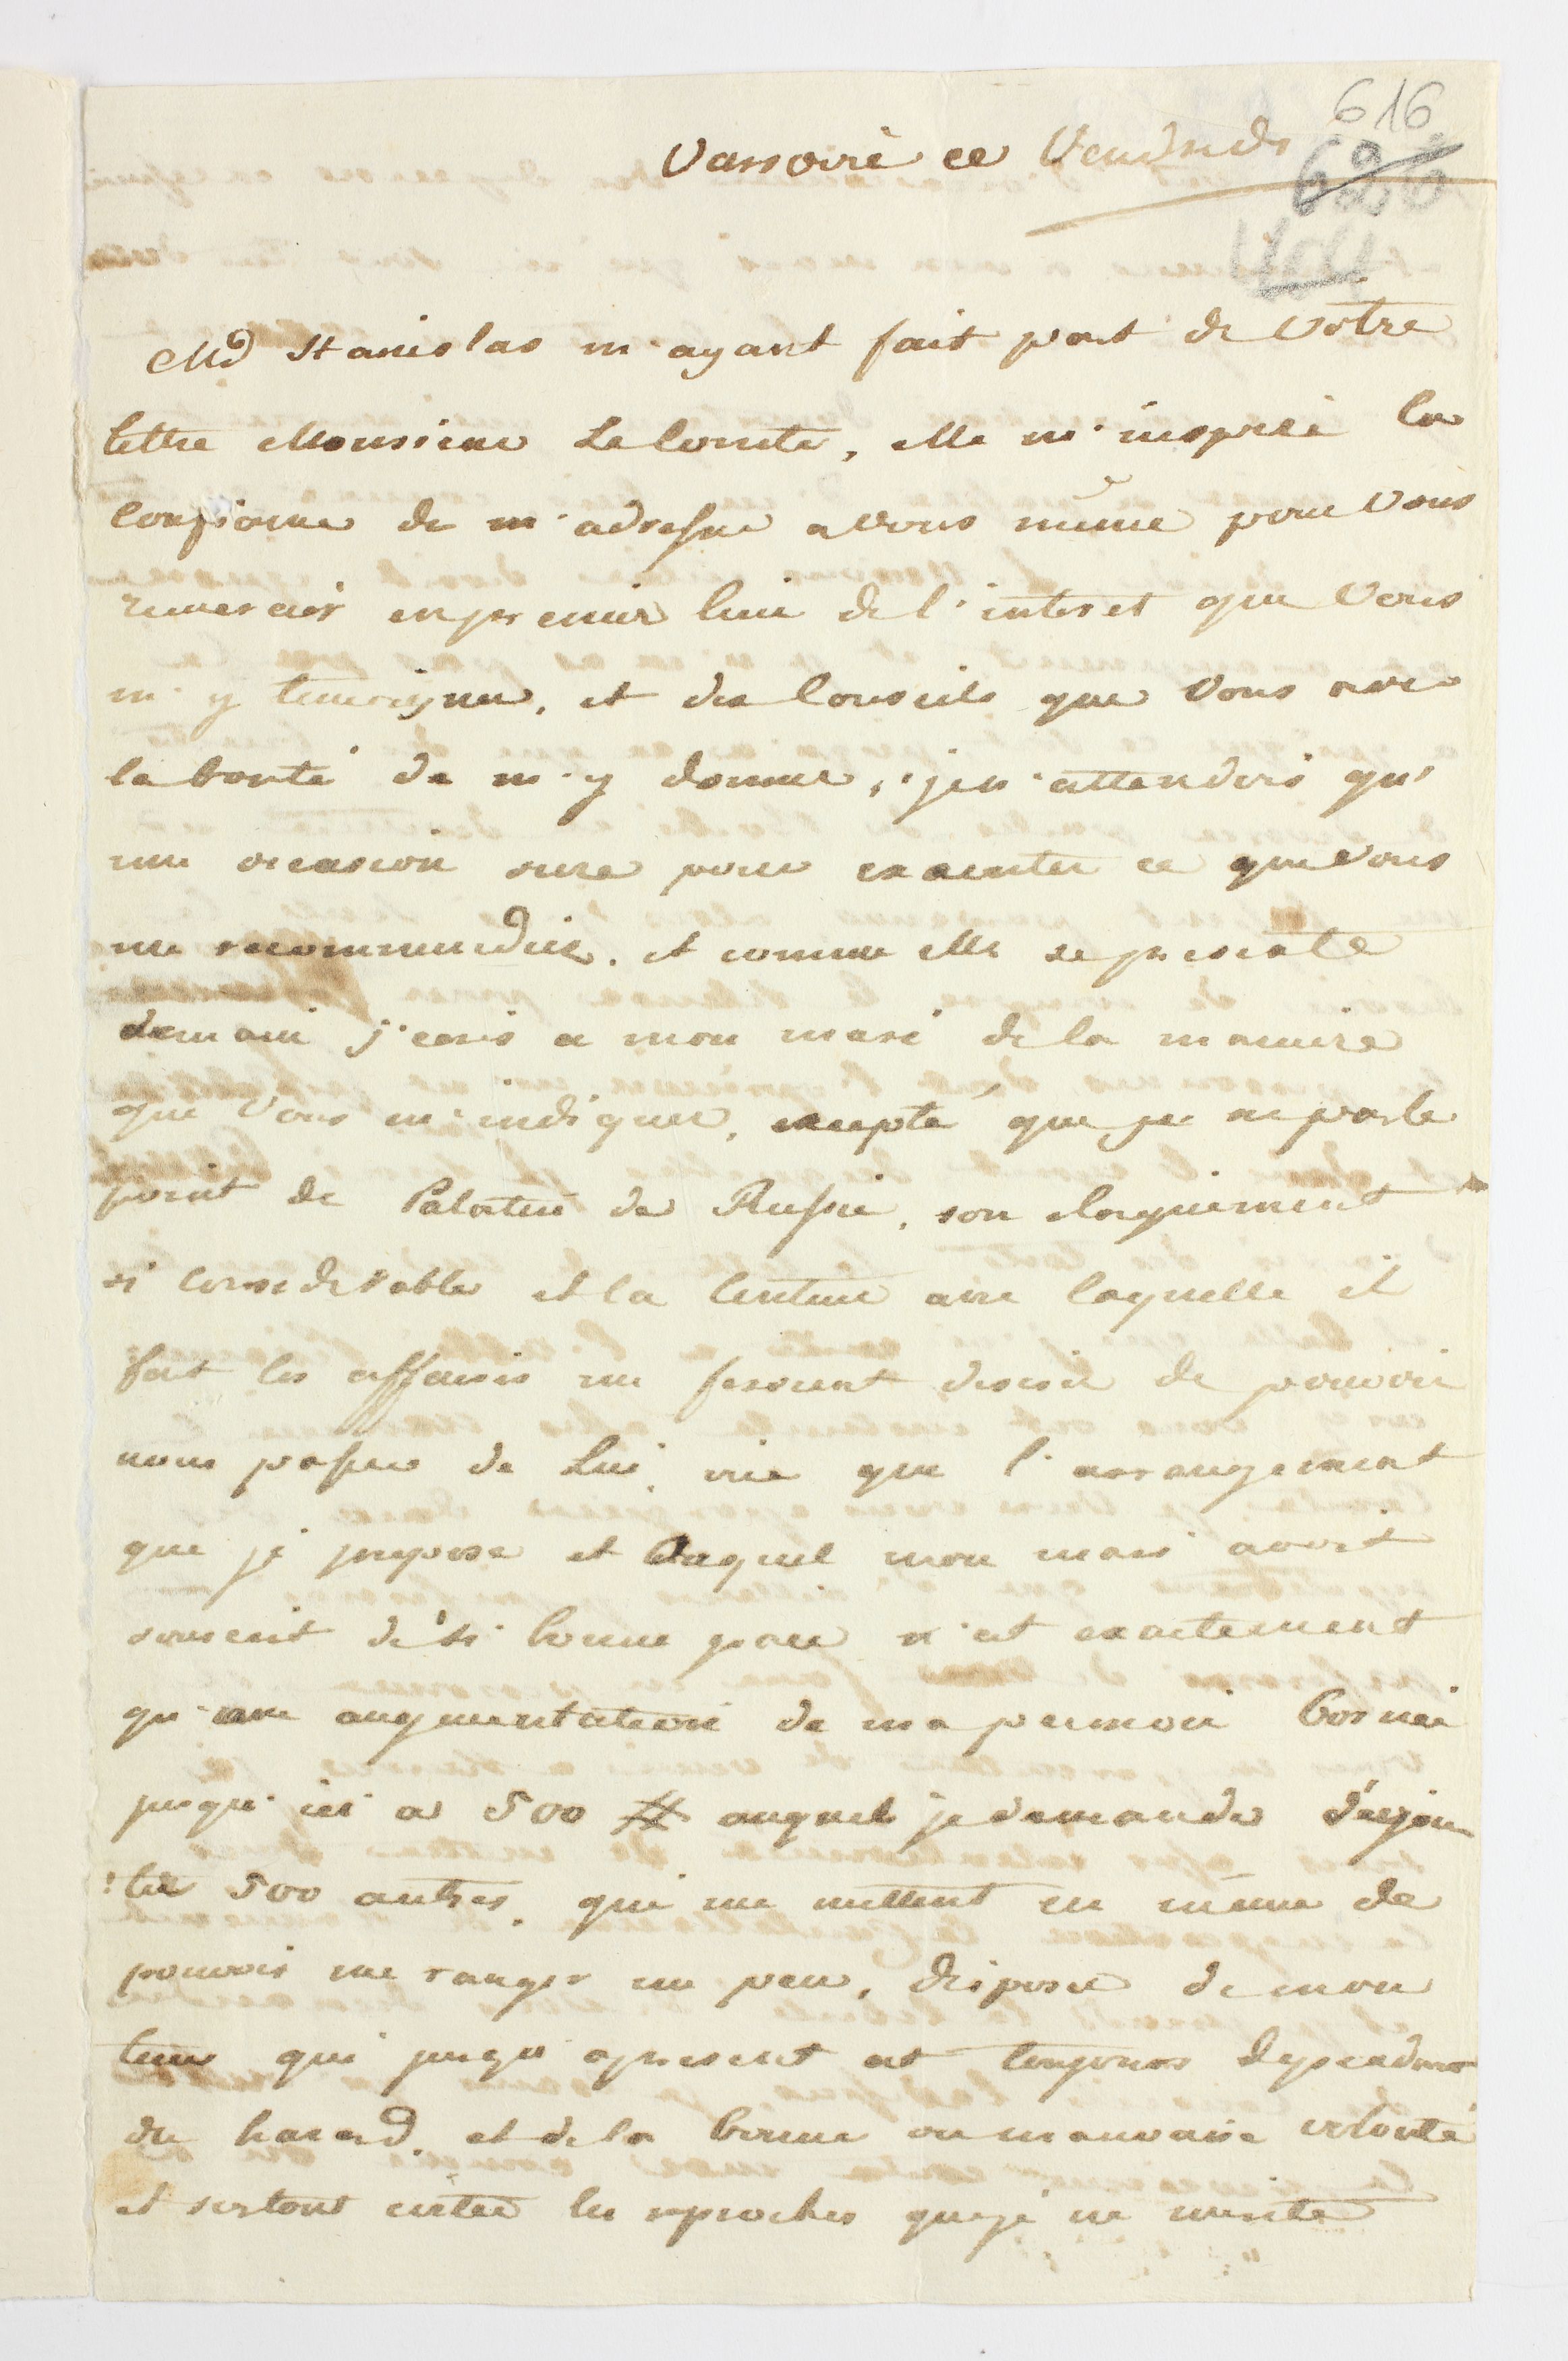 616
Varsovie ce Vendredi
620
404
Md Stanislas m'ayant fait part de Votre
lettre Monsieur Le Comte, elle m'inspire la
confiance de m'adresser a vous même pour Vous
remercier en premier lieu de l'interet que Vous
m'y temoignez, et des Conseils que Vous avez
la bonté de m'y donner, je n'attendois qu'
une occasion sure pour executer ce que Vous
me recommendiez. et comme elle se presente
demain j'ecris a mon mari de la maniere
que Vous m'indiquez, excepté que je ne parle
point de Palatin de Russie, son eloignement
si considerable et la lenteur avec laquelle il
fait les affaires me feroient desirer de pouvoir
nous passer de Lui, vue que l'arrangement
que je propose et auquel mon mari avoit
souscrit de si bonne grace n'est exactement
qu'une augmentation de ma pension bornée
jusqu'ici a 500 # auquel je demande d'ajou
ter 500 autres, qui me mettent en même de
pouvoir me ranger un peu, disposer de mon
tems qui jusqu'apresent est toujours dependant
du hazard, et de la bonne ou mauvaise volonté
et surtout eviter les reproches que je ne merite